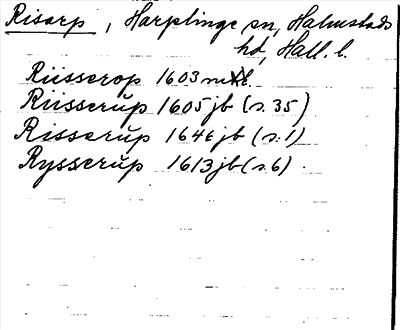 Risarp, Harplinge sn, Halmstads
hd, Hall. l.
Riisserop 1603 mtl.
Riisserup 1605 jb (s. 35)
Risserup 1646 jb (s. 1)
Rysserup 1613 jb (s. 6)